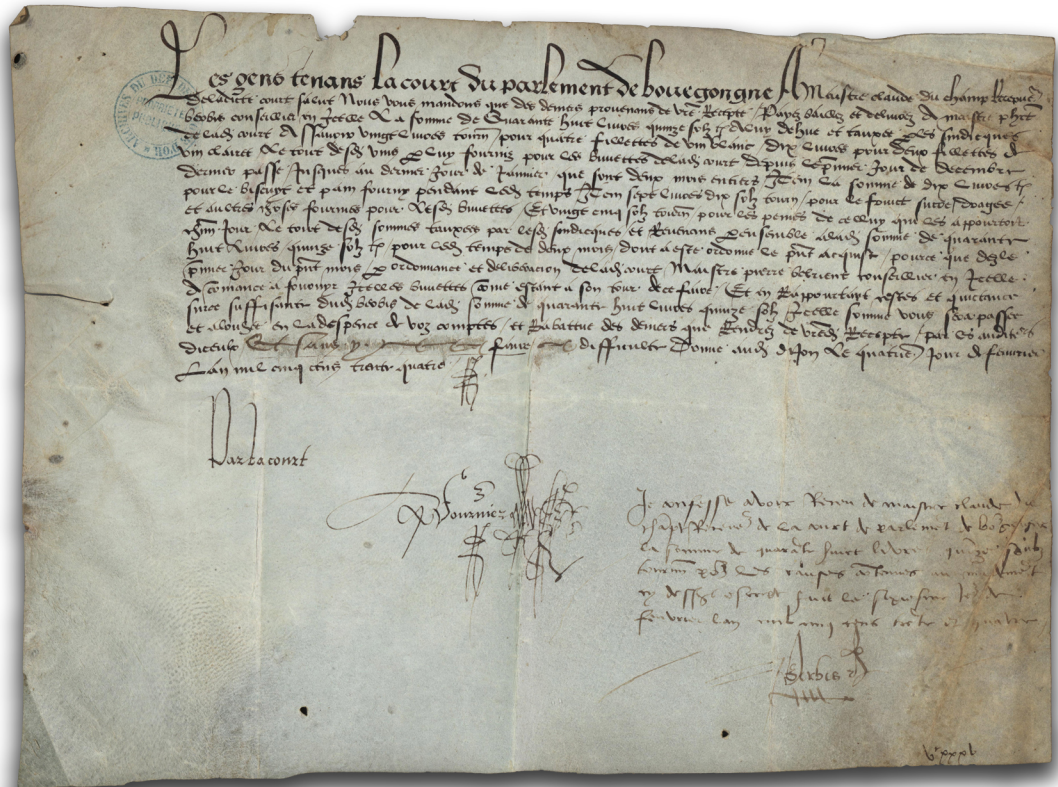 Les gens tenans la court du parlement de bourgongne A Maistre claude du champ Recepur
de ladicte court salut Nous vous mandons que des deniers provenans de vre Recepte Payez baillez et delivrez a maistre
conseiller en Icelle La somme de Quarante huit livres quinze solz tz a luy dehue et tauxee p les sindicques
de lad court A scavoir vingt livres tourn pour quatre fillettes de vin blanc dix livres pour deux fillettes de
vin clairet Le tout desd vins p luy fourniz pour les buvettes de lad court depuis le pmier Jour de decembre
dernier passe Jusques au dernier Jour de Janvier que sont deux mois entiers Item La somme de dix livres tz
pour le biscuyt et pain fourny pendant led temps Item sept livres dix solz tourn pour le
et aultres choses fournies pour Lesd buvettes Et vingt cinq solz tourn pour les peines de celluy qui les a apourtees
Jour Le tout desd sommes tauxees par lesd sindicques et Revenans ensemble a lad somme de quarante
huit livres quinze solz tz pour led temps de deux mois dont a este ordonne le pnt acquict pource que des le
pmier Jour du pnt mois p ordonnance et deliberacion de lad court Maistre pierre belrient conseillier en Icelle
a commance a fournir Icelles buvettes come estant a son tour de ce faire Et en Rappourtant cestes et quictance
sur ce suffisante dud de lad somme de quarante huit livres quinze solz Icelle somme vous sera passee
et alouee en la despence de voz comptes et Rabattue des deniers que Rendrez de vred Recepte par les auditeurs
diceulx Et sans y faire difficulte Donne aud dijon Le quatre Jour de fevrier
Lan mil cinq cens trente quatre
Par la court
Fournier
Je confesse avoir Receu de maistre claude du
champ Receveur de la court de parlemet de
la somme de quarate huict livres quinze solz
tourn les causes contenues au mandemet
cy dessus escript fait le sixiesme Jor de
fevrier lan mil cinq cens trete et quatre